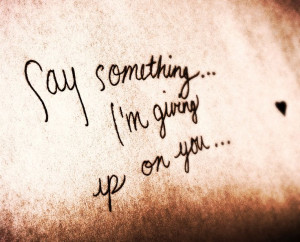 Say something...
I'm giving
up on you...